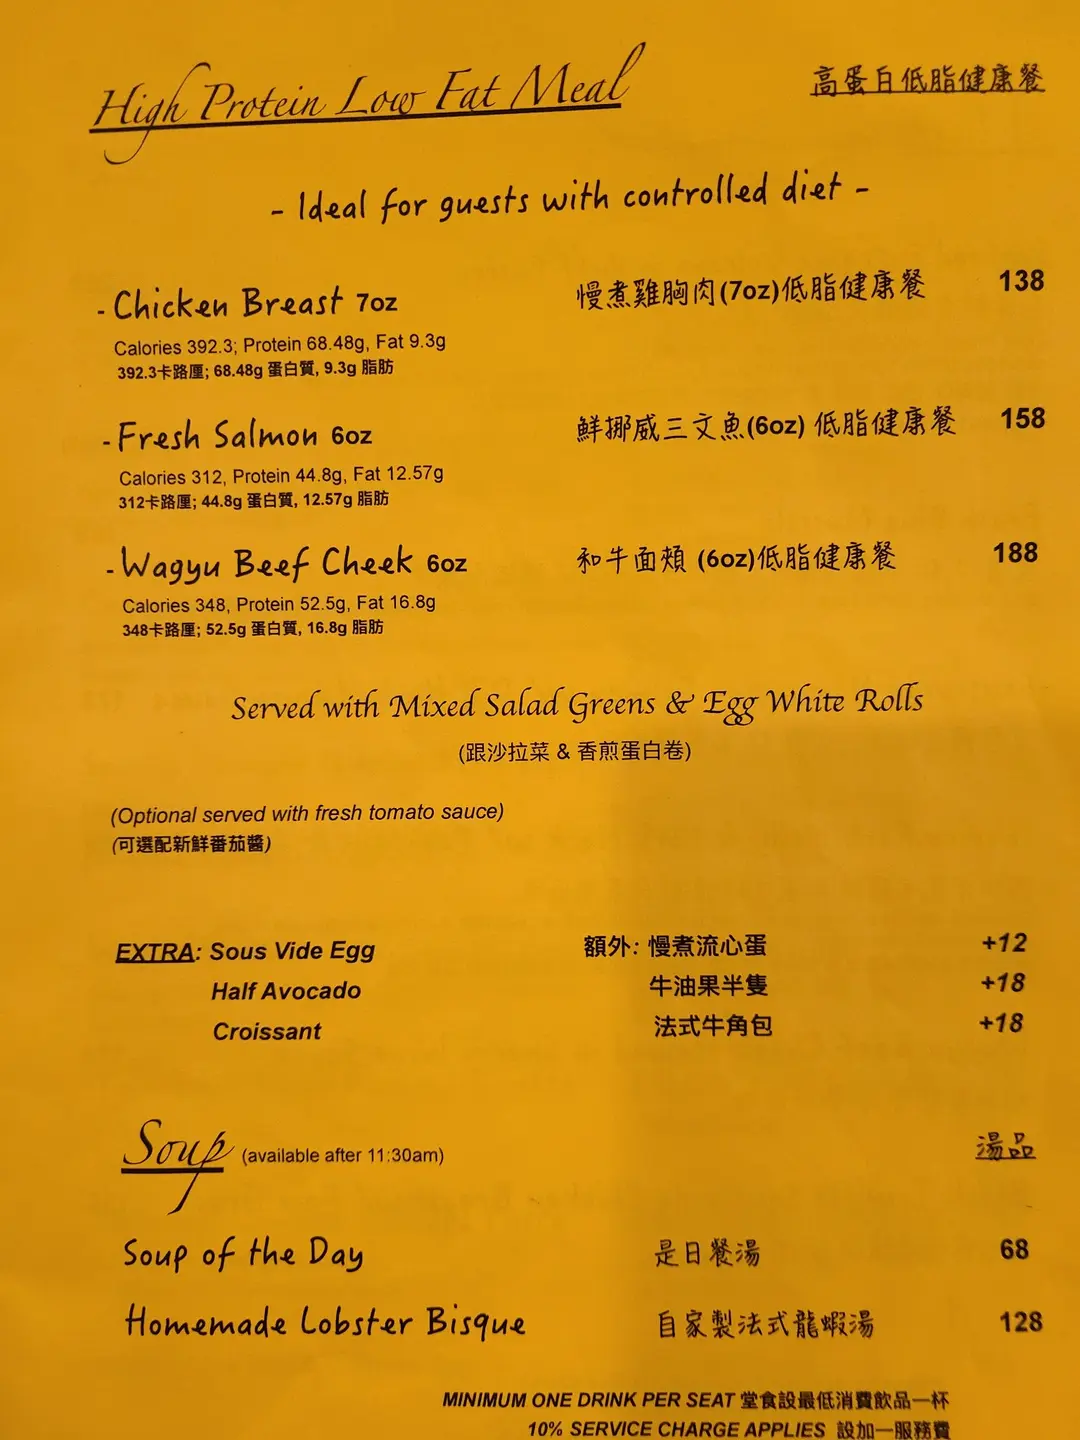 High Protein Low Fat Meal 高蛋白低脂健康餐
- Ideal for guests with controlled diet -
- Chicken Breast 7oz 慢煮雞胸肉(7oz)低脂健康餐 138
Calories 392.3; Protein 68.48g, Fat 9.3g
392.3卡路厘; 68.48g 蛋白質, 9.3g 脂肪
- Fresh Salmon 6oz 鮮挪威三文魚(6oz) 低脂健康餐 158
Calories 312, Protein 44.8g, Fat 12.57g
312卡路厘; 44.8g 蛋白質, 12.57g 脂肪
- Wagyu Beef Cheek 6oz 和牛面頰 (6oz)低脂健康餐 188
Calories 348, Protein 52.5g, Fat 16.8g
348卡路厘; 52.5g 蛋白質, 16.8g 脂肪
Served with Mixed Salad Greens & Egg White Rolls
(跟沙拉菜 & 香煎蛋白卷)
(Optional served with fresh tomato sauce)
(可選配新鮮番茄醬)
EXTRA: Sous Vide Egg 額外: 慢煮流心蛋 +12
Half Avocado 牛油果半隻 +18
Croissant 法式牛角包 +18
Soup (available after 11:30am) 湯品
Soup of the Day 是日餐湯 68
Homemade Lobster Bisque 自家製法式龍蝦湯 128
MINIMUM ONE DRINK PER SEAT 堂食設最低消費飲品一杯
10% SERVICE CHARGE APPLIES 設加一服務費